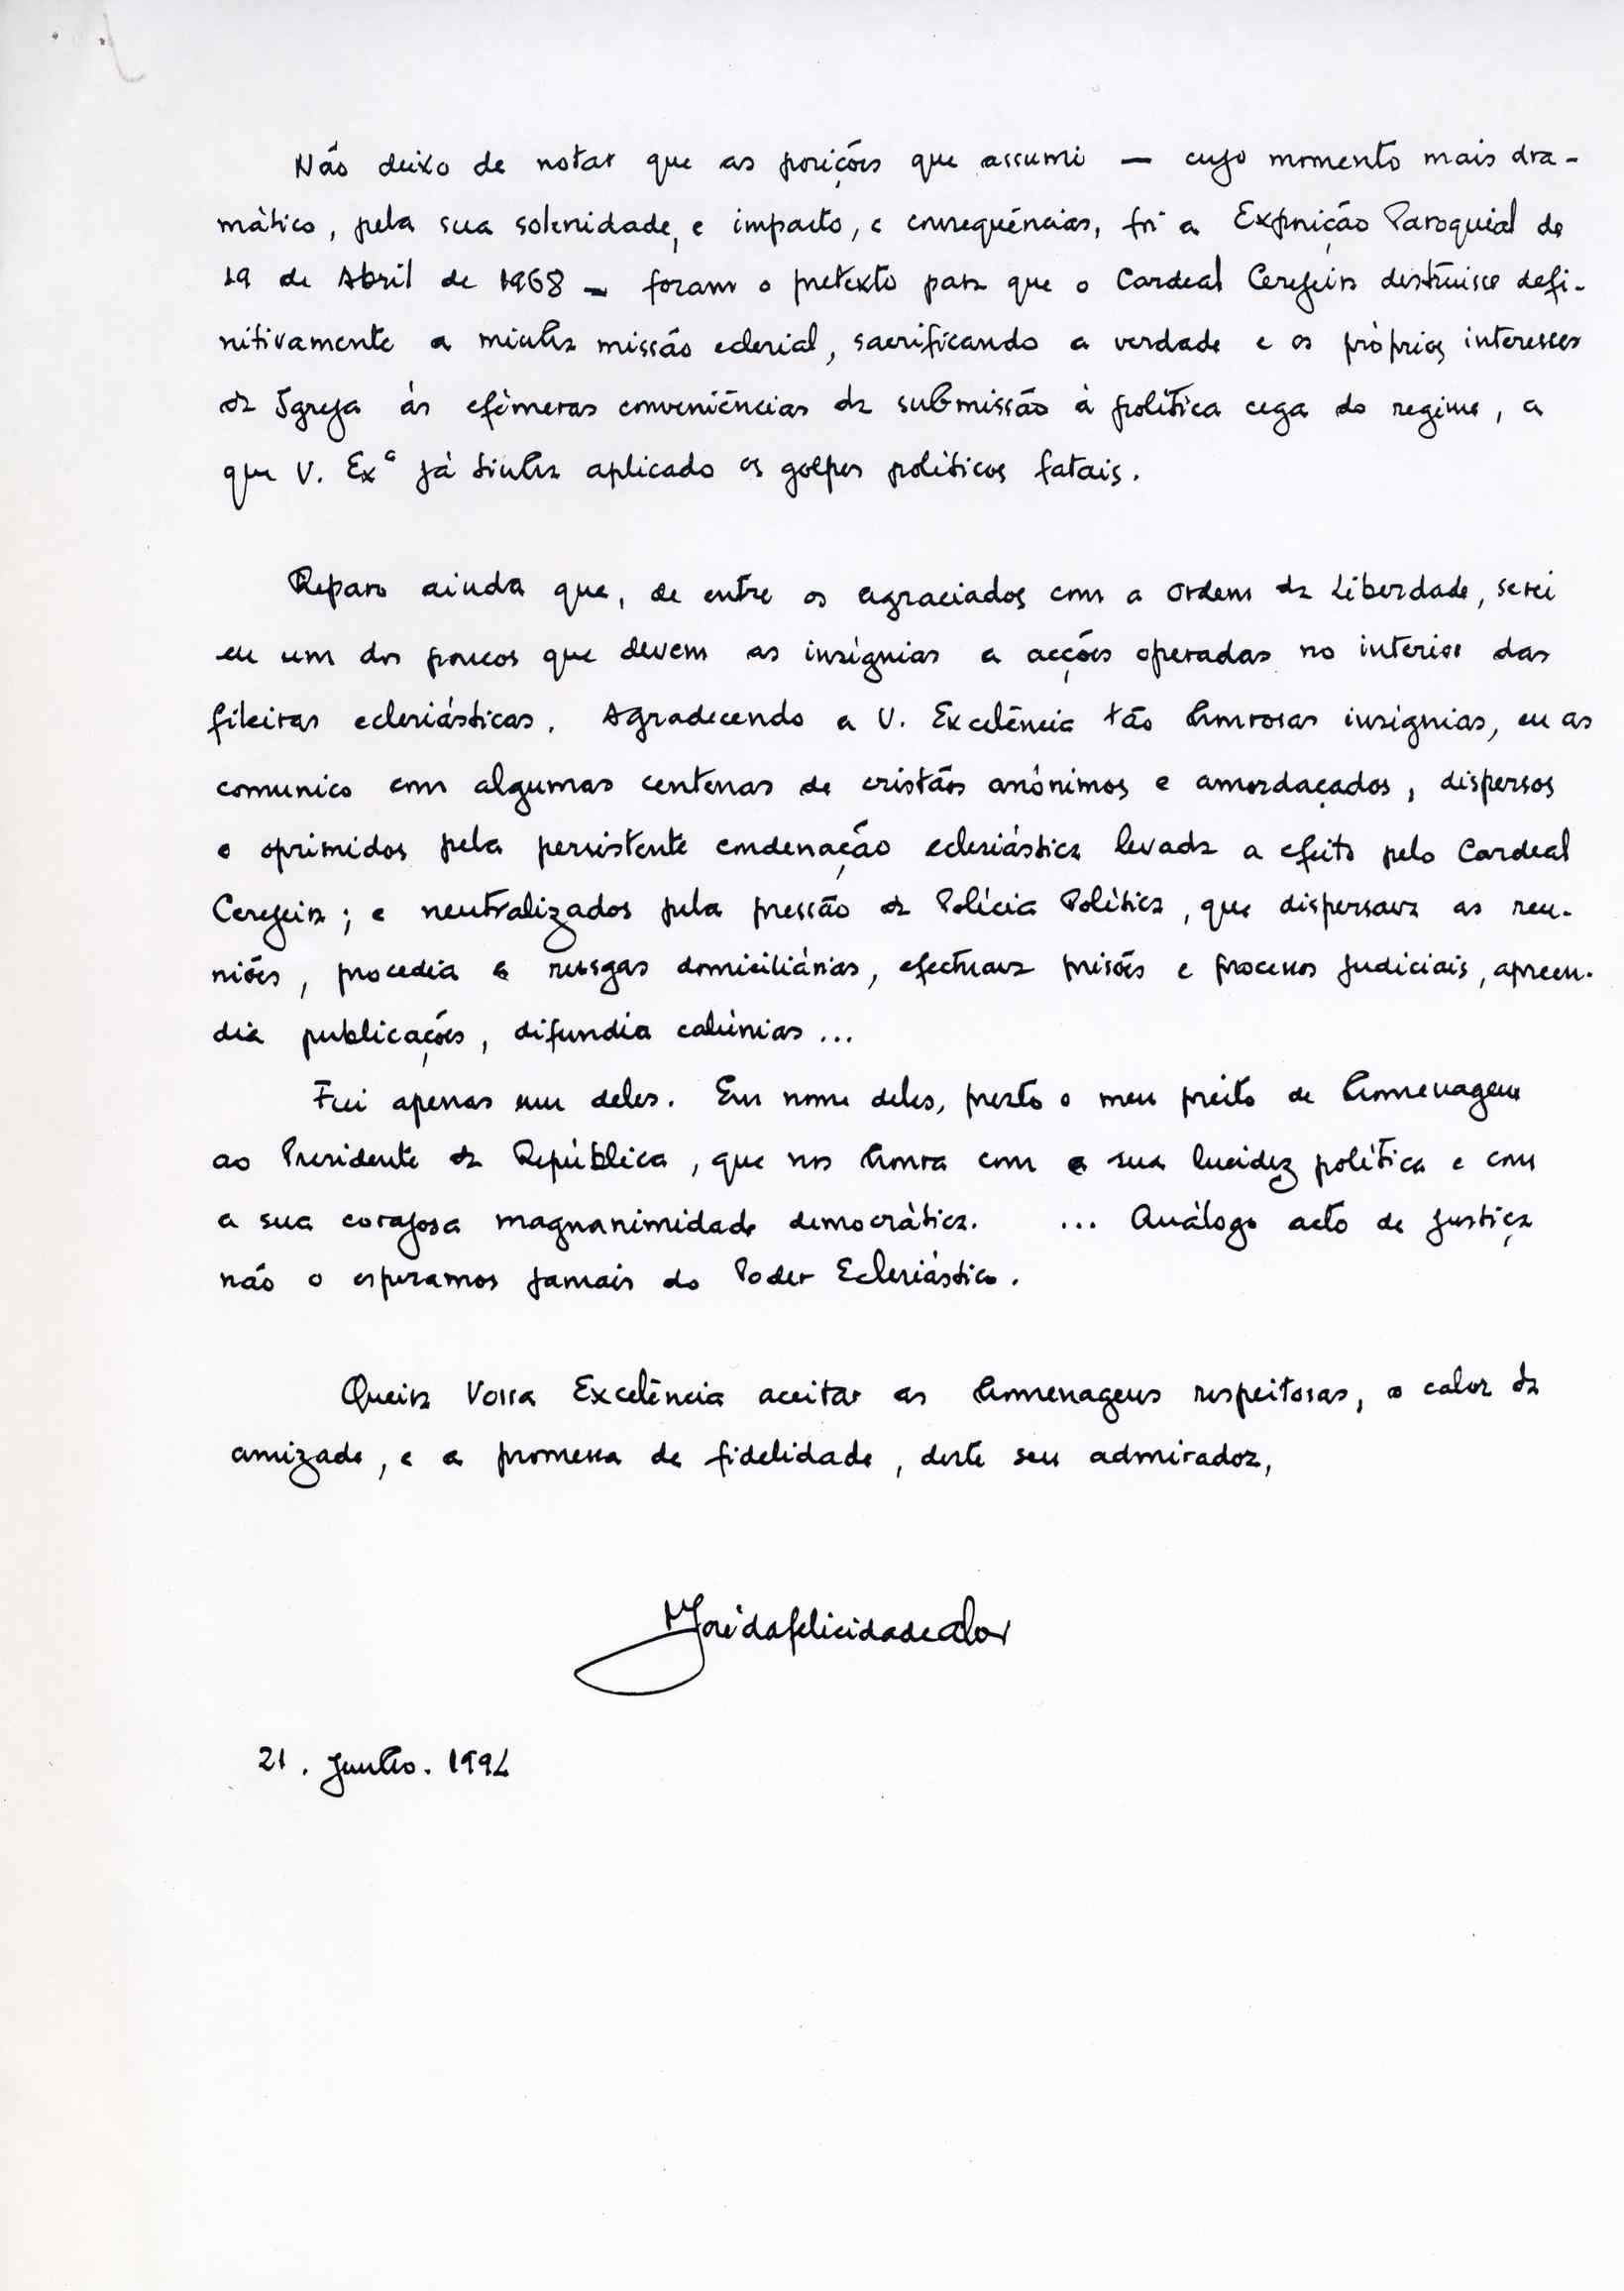 Não deixo de notar que as posições que assumi — cujo momento mais dra-
mático, pela sua solenidade, e impacto, e consequências, foi a Exposição Paroquial de
19 de Abril de 1968 — foram o pretexto para que o Cardeal Cerejeira destruisse defi-
nitivamente a minha missão eclesial, sacrificando a verdade e os próprios interesses
da Igreja às efémeras conveniências da submissão à política cega do regime, a
que V. Exª já tinha aplicado os golpes políticos fatais.
Reparo ainda que, de entre os agraciados com a Ordem da Liberdade, serei
eu um dos poucos que devem as insígnias a acções operadas no interior das
fileiras eclesiásticas. Agradecendo a V. Excelência tão honrosas insígnias, eu as
comunico com algumas centenas de cristãos anónimos e amordaçados, dispersos
e oprimidos pela persistente condenação eclesiástica levada a efeito pelo Cardeal
Cerejeira; e neutralizados pela pressão da Polícia Política, que dispersava as reu-
niões, procedia a rusgas domiciliárias, efectuava prisões e processos judiciais, apreen-
dia publicações, difundia calúnias ...
Fui apenas um deles. Em nome deles, presto o meu preito de homenagem
ao Presidente da República, que nos honra com a sua lucidez política e com
a sua corajosa magnanimidade democrática. ... Análogo acto de justiça
não o esperamos jamais do Poder Eclesiástico.
Queira Vossa Excelência aceitar as homenagens respeitosas, o calor da
amizade, e a promessa de fidelidade, deste seu admirador,
José da Felicidade Alves
21. Junho. 1994